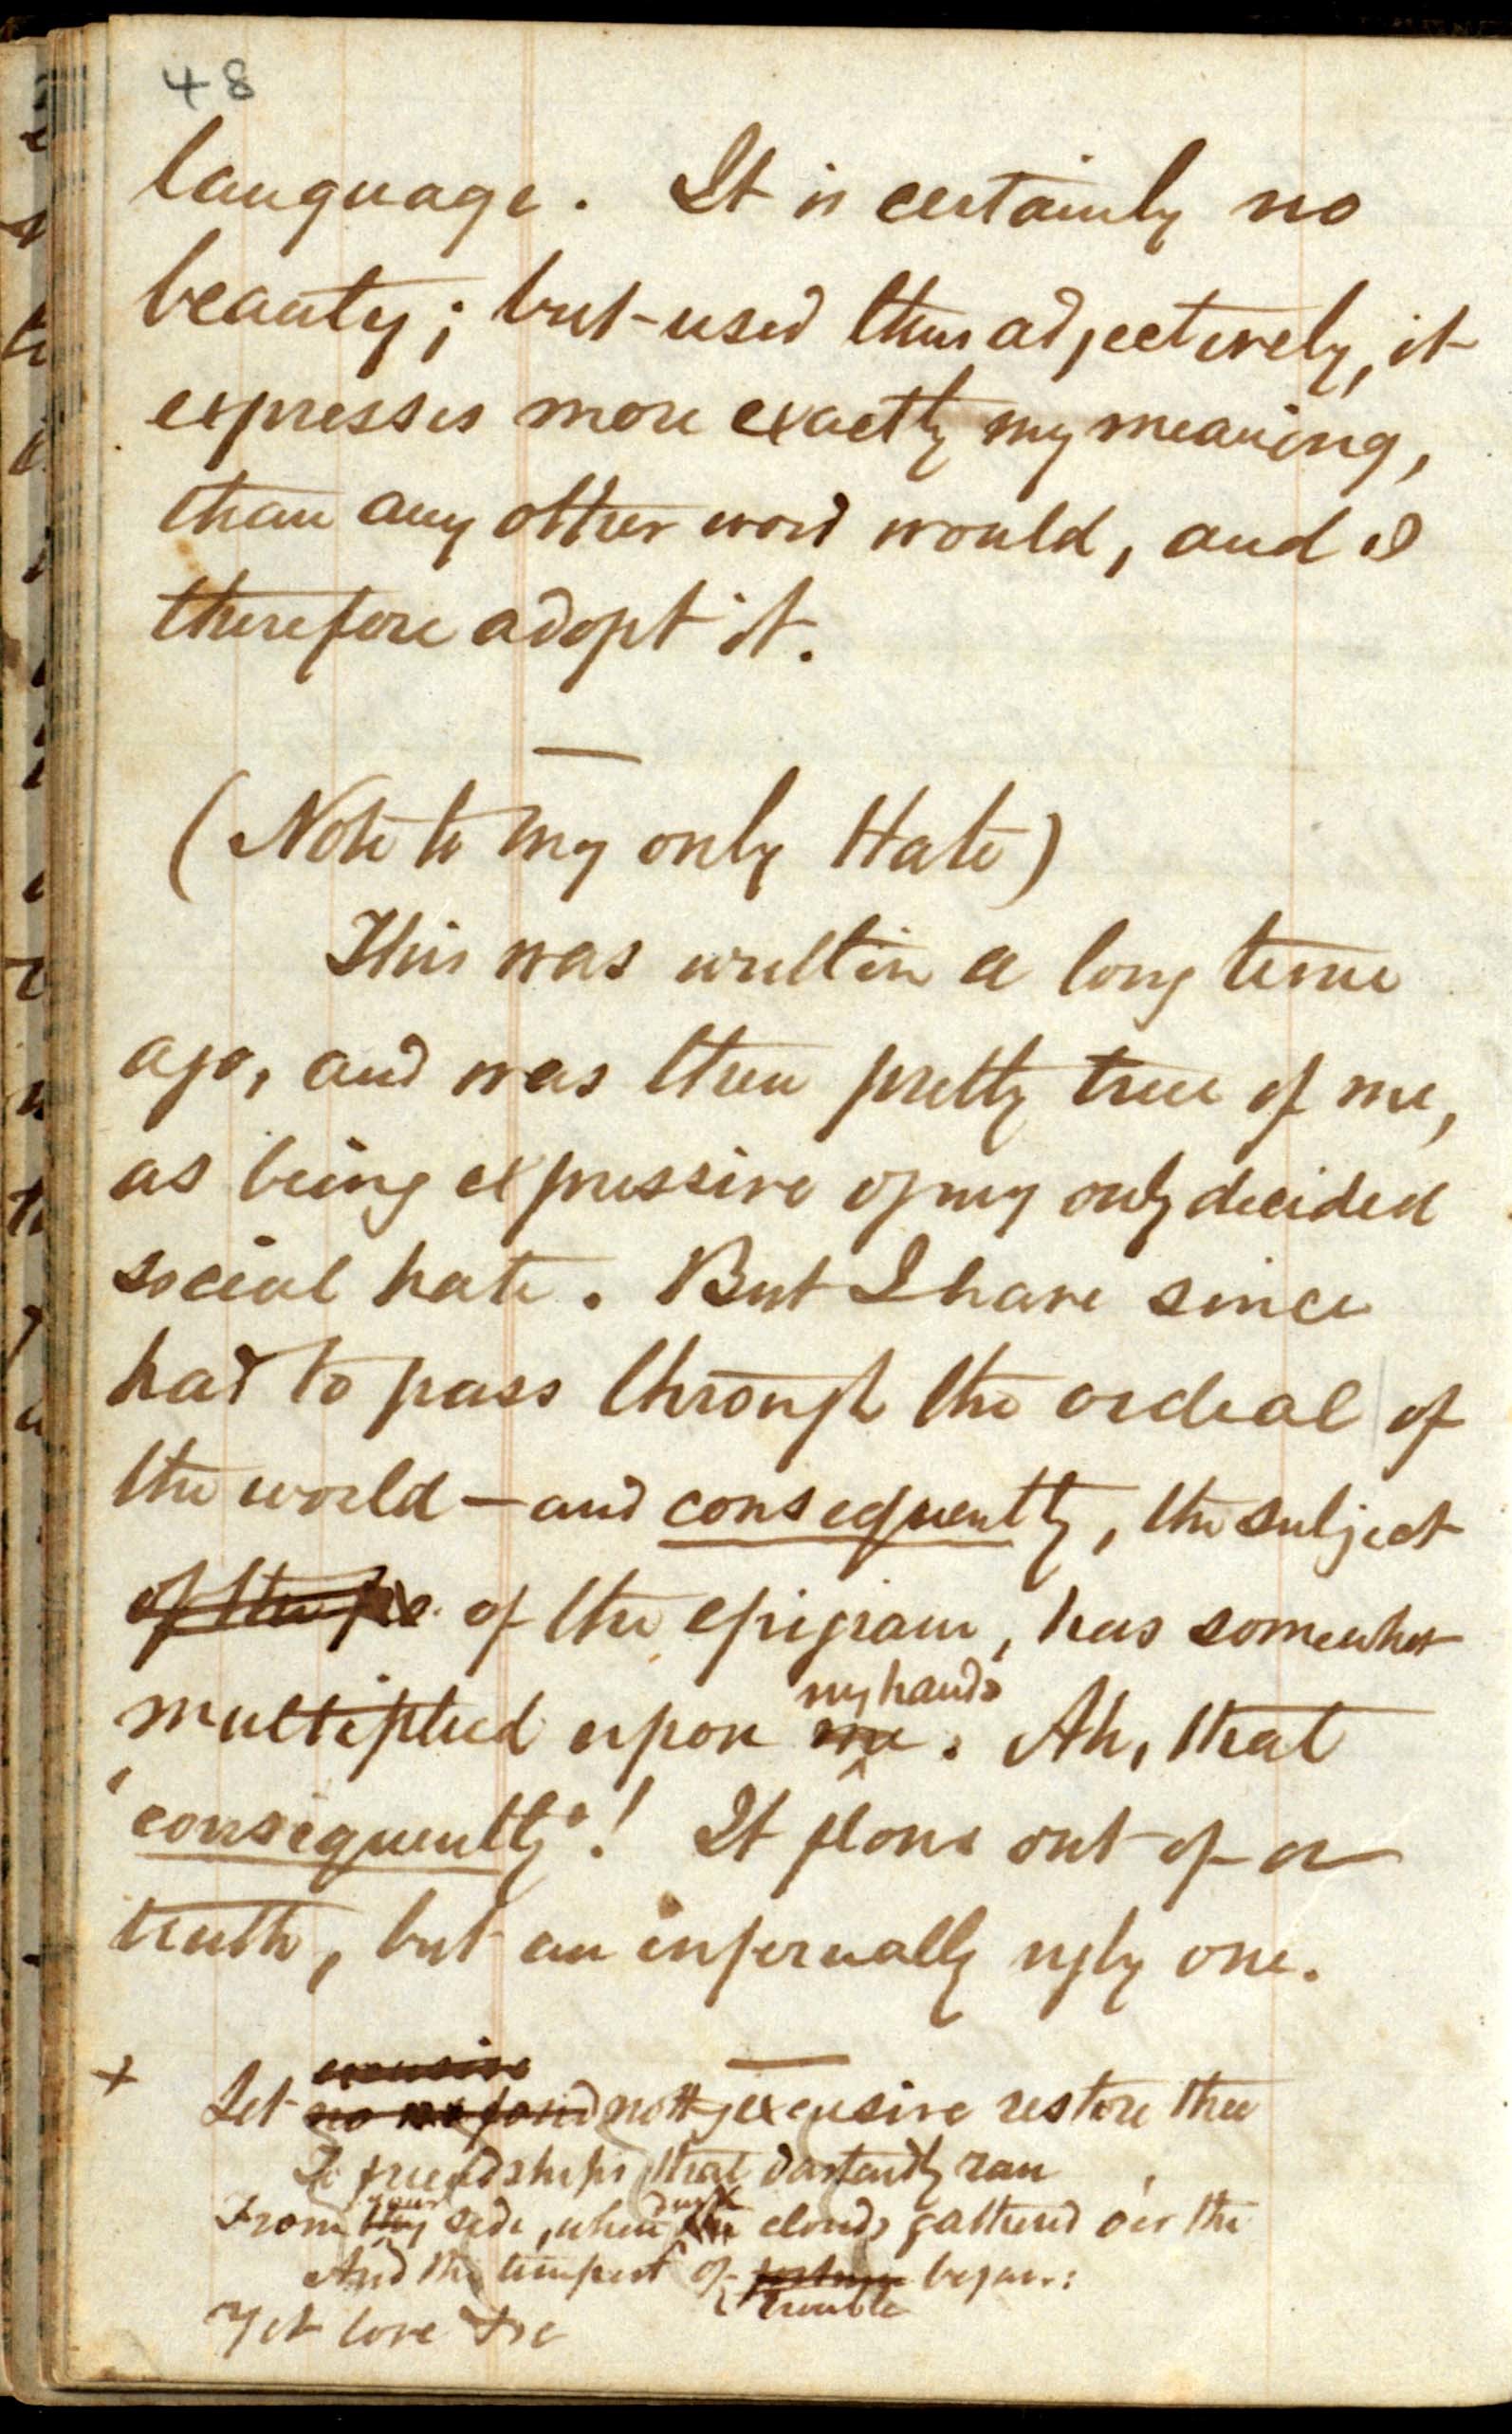 48
language. It is certainly no
beauty; but used thus adjectively, it
expresses more exactly my meaning,
than any other word would, and I
therefore adopt it.
(Note to my only Hate)
This was written a long time
ago, and was then pretty true of me,
as being expressive of my only decided
social hate. But I have since
had to pass through the ordeal of
the world — and consequently, the subject
of the of the epigram, has somewhat
my hands
multiplied upon me. Ah, that
"consequently"! It flows out of a
truth, but an infernally ugly one.
excusive
+ Let no fond not excusive restore thee
To friendships that dastardly ran
your dark
From thy side, when the clouds gathered o'er thee
And the tempest of fortune began:
trouble
Yet love &c